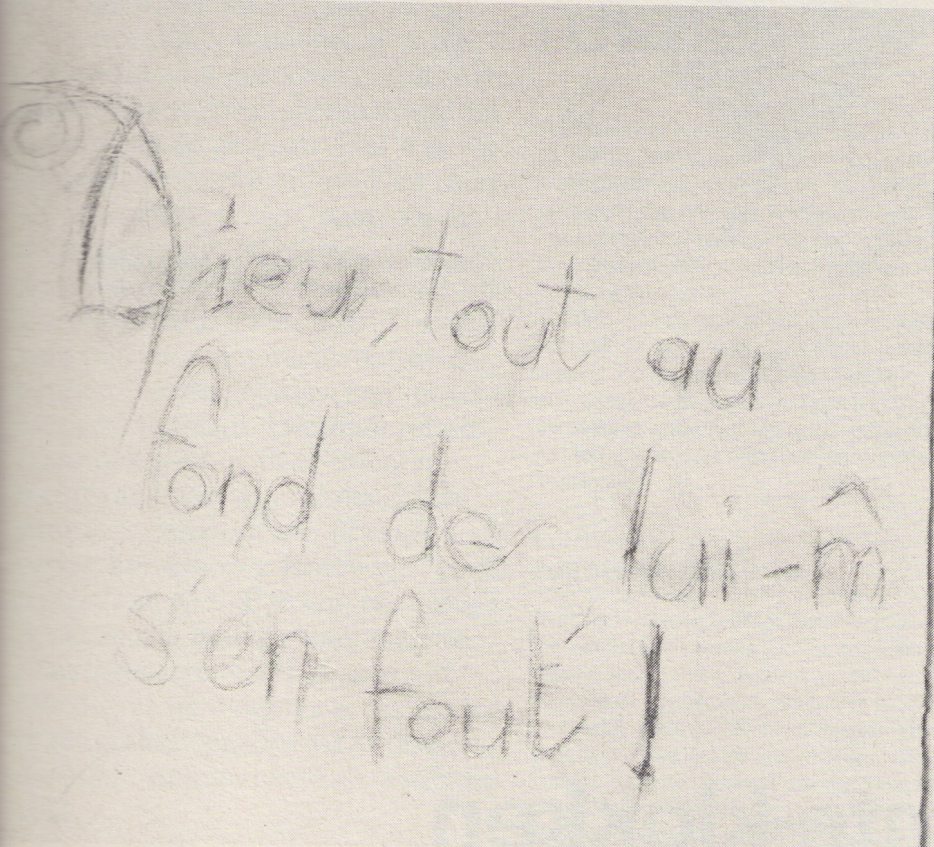 Dieu, tout au
fond de lui-m̂
s'en fout !